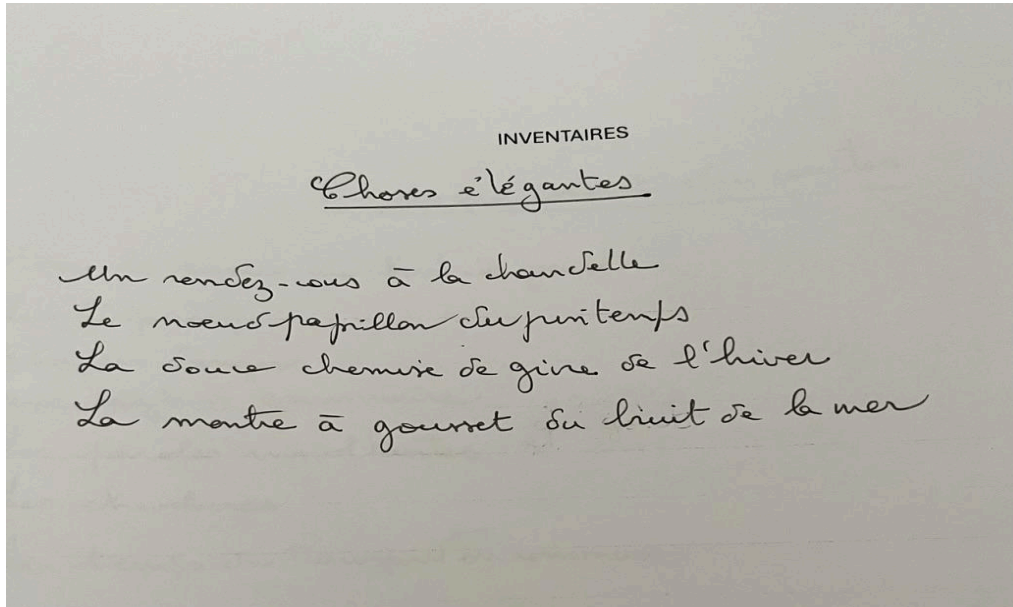 INVENTAIRES
Choses élégantes
Un rendez-vous à la chandelle
Le noeud papillon du printemps
La douce chemise de givre de l'hiver
La montre à gousset du bruit de la mer